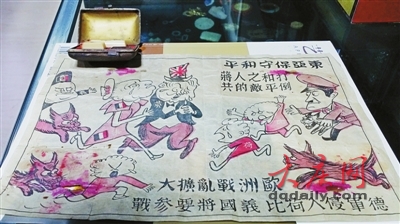 東亞保守和平
打倒
和平
之敵
人的
蔣共
歐洲戰亂擴大
德軍侵入荷比義國將要參戰
dqdaily.com